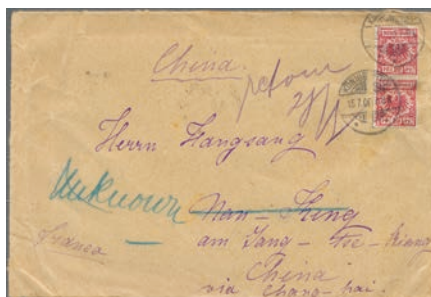 China.
retour
Herrn Hangsang
Unknown
Nan-King
am Jang-Tse-Kiang
China
via Chang-hai.
Franca